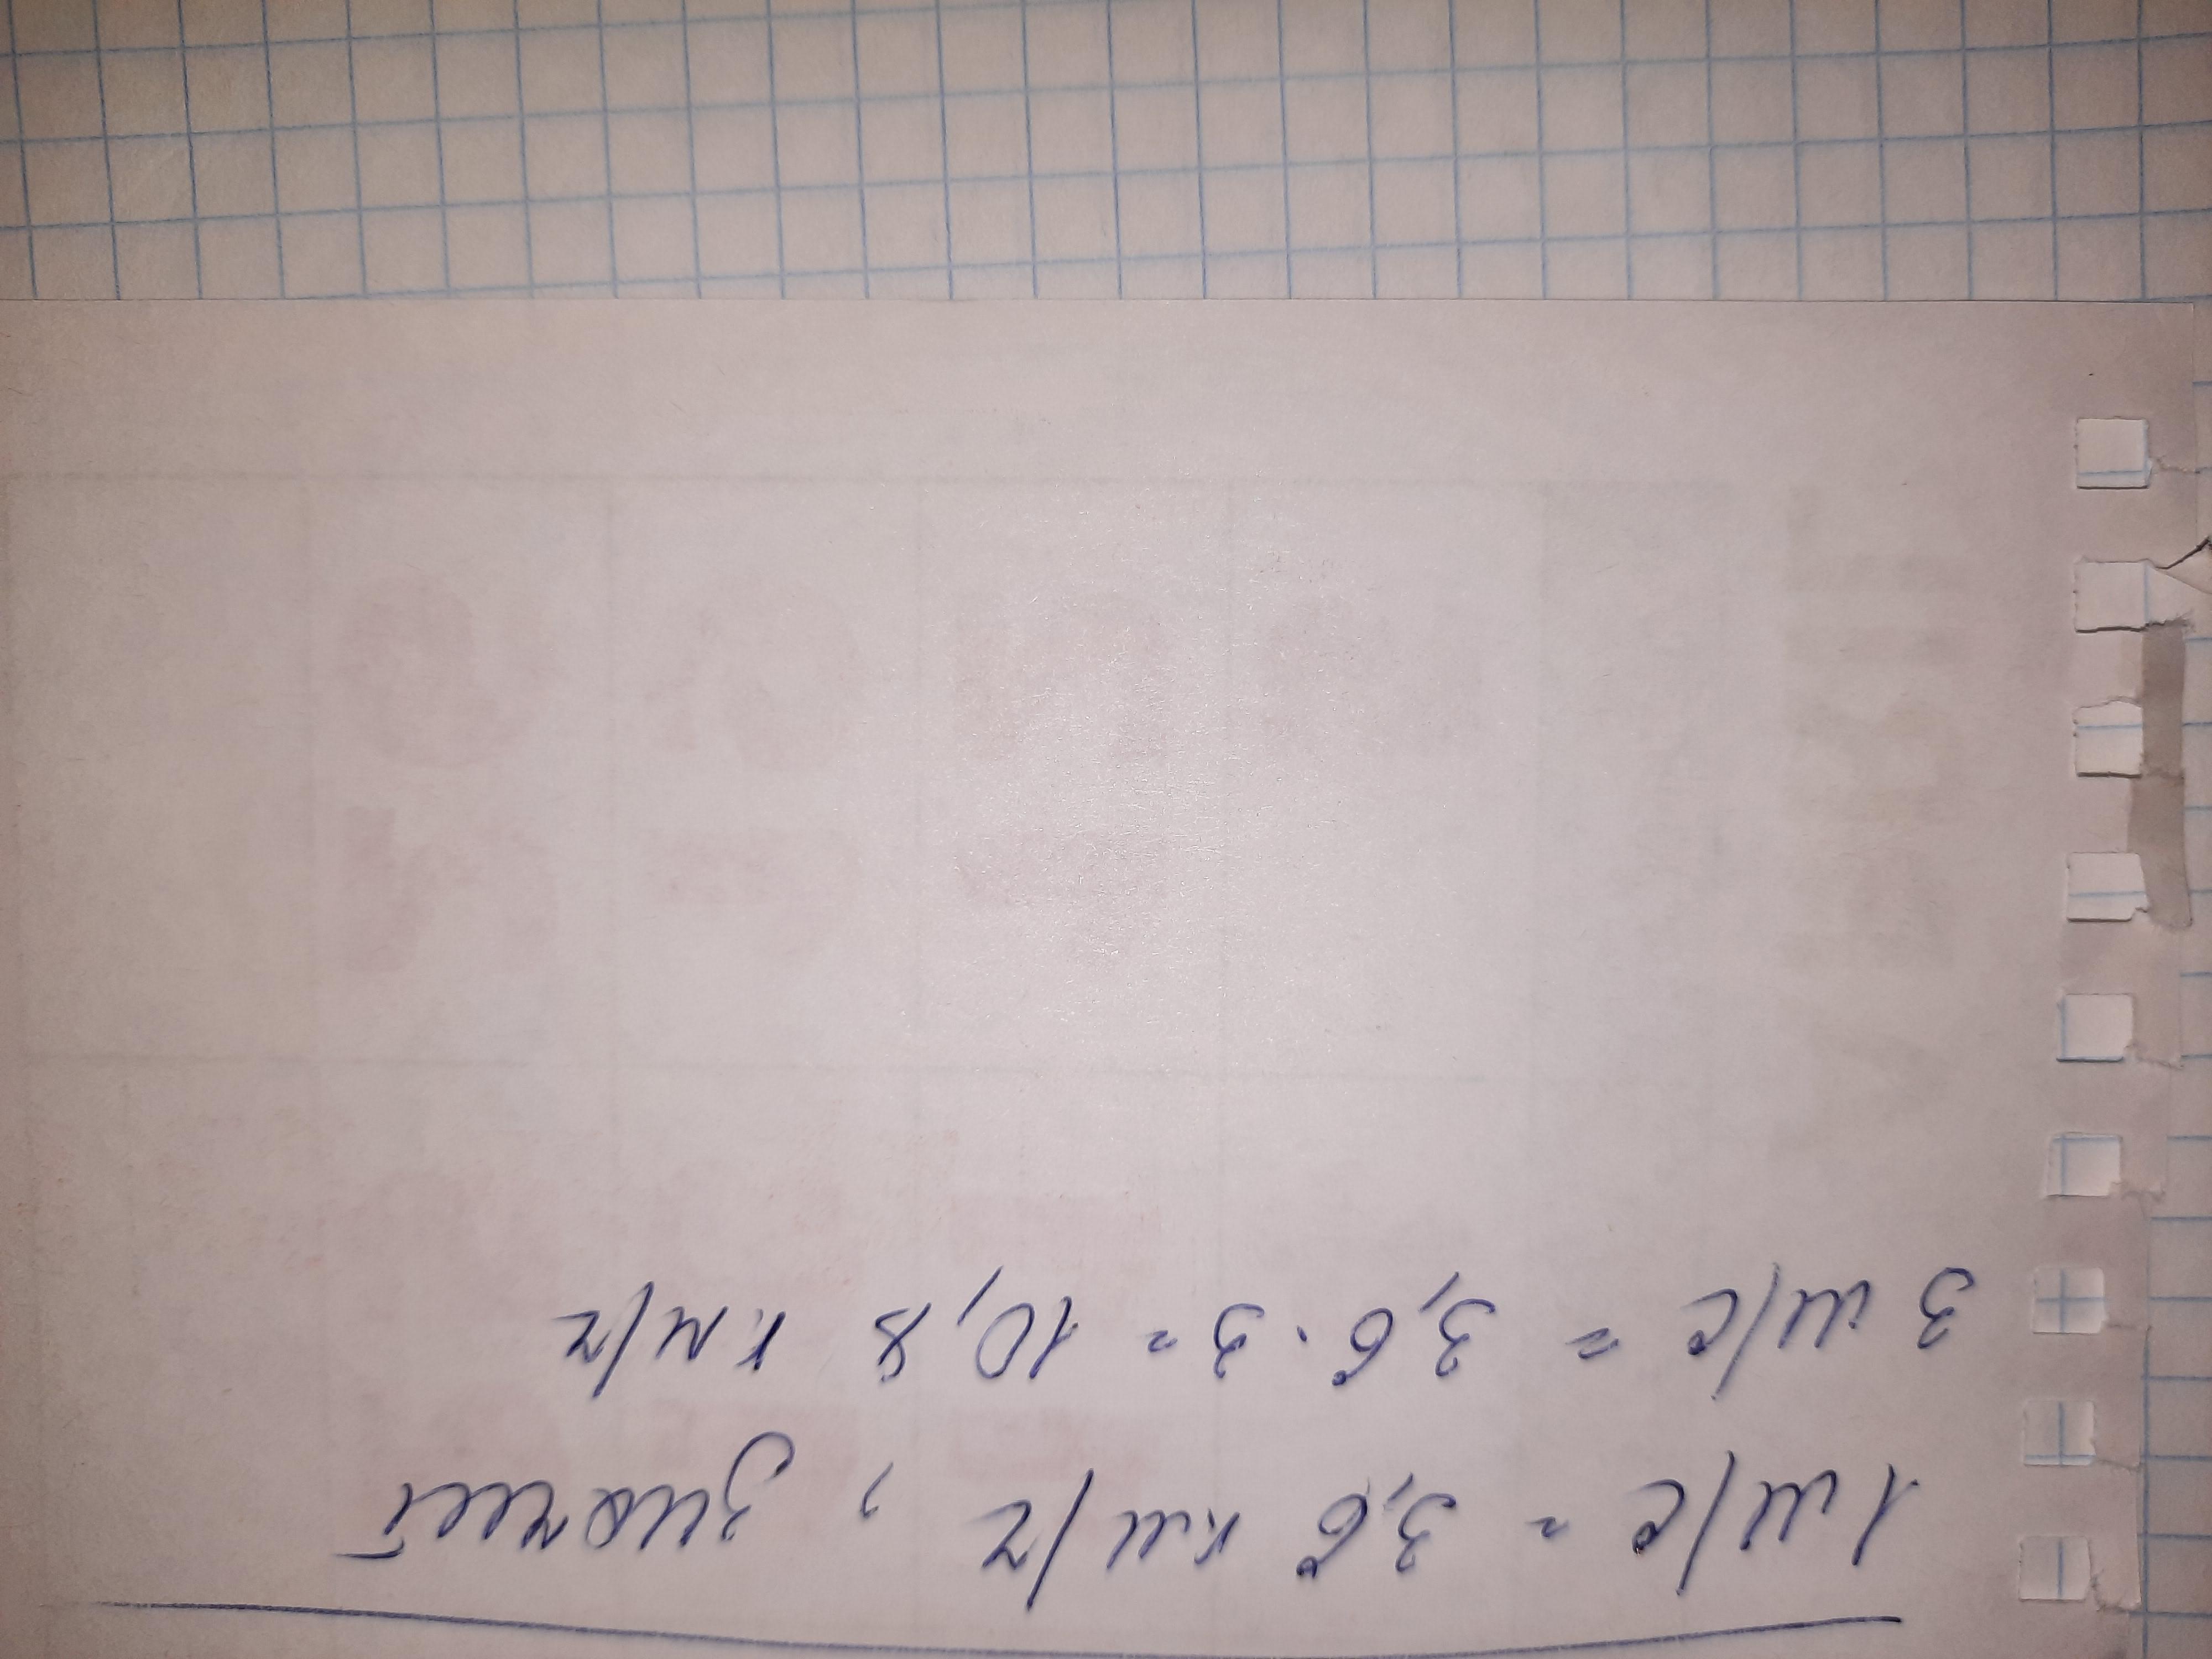 1 м/с = 3,6 км/ч, значит
3 м/с = 3,6 · 3 = 10,8 км/ч